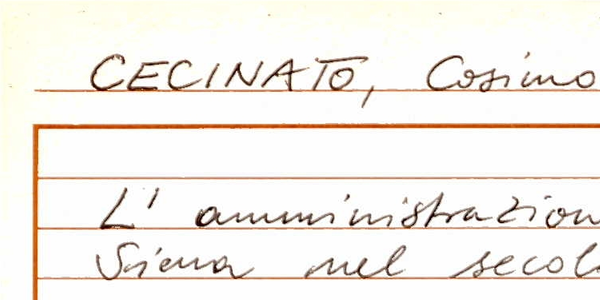 CECINATO, Cosimo
L'amministrazion
Siena nel secol